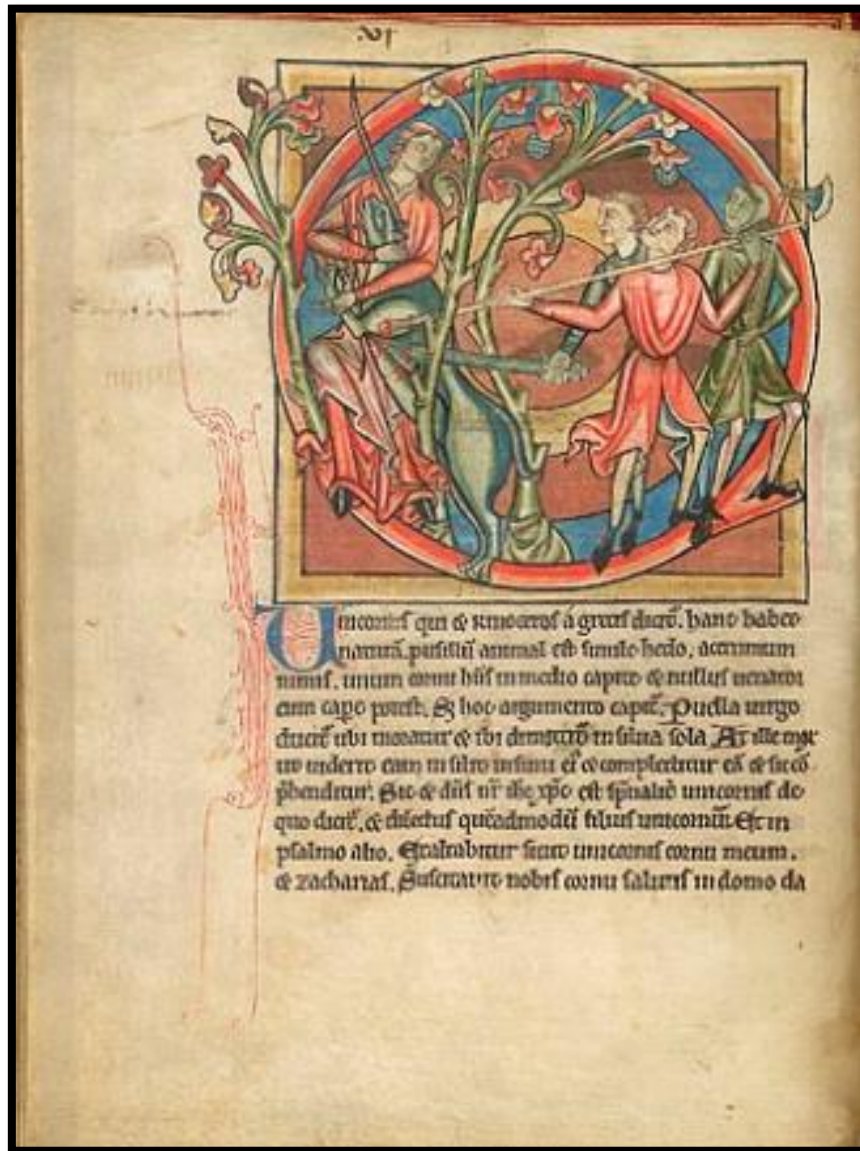 .vi
Unicornis qui & rinoceros a grecis dicit̄. hanc habet
naturā. pusillū animal est simile hedo, acerrimum
nimis. unum cornu h̄ns in medio capite & nullus uenator
eum cap̄e potest. S; hoc argumento capit̄. Puella uirgo
ducit̄ ubi moratur & ibi dimittit̄ in silua sola. At ille mox
in sinu eī & complectitur eā & sic cō
p̄henditur. Sic & dn̄s nr̄ ih̄c xp̄c est sp̄ualis unicornis de
quo dicit̄. & dilectus quēadmodū filius unicorniū. Et in
psalmo alio. Exaltabitur sicut unicornis cornu meum.
& zacharias. Suscitauit nobis cornu salutis in domo da